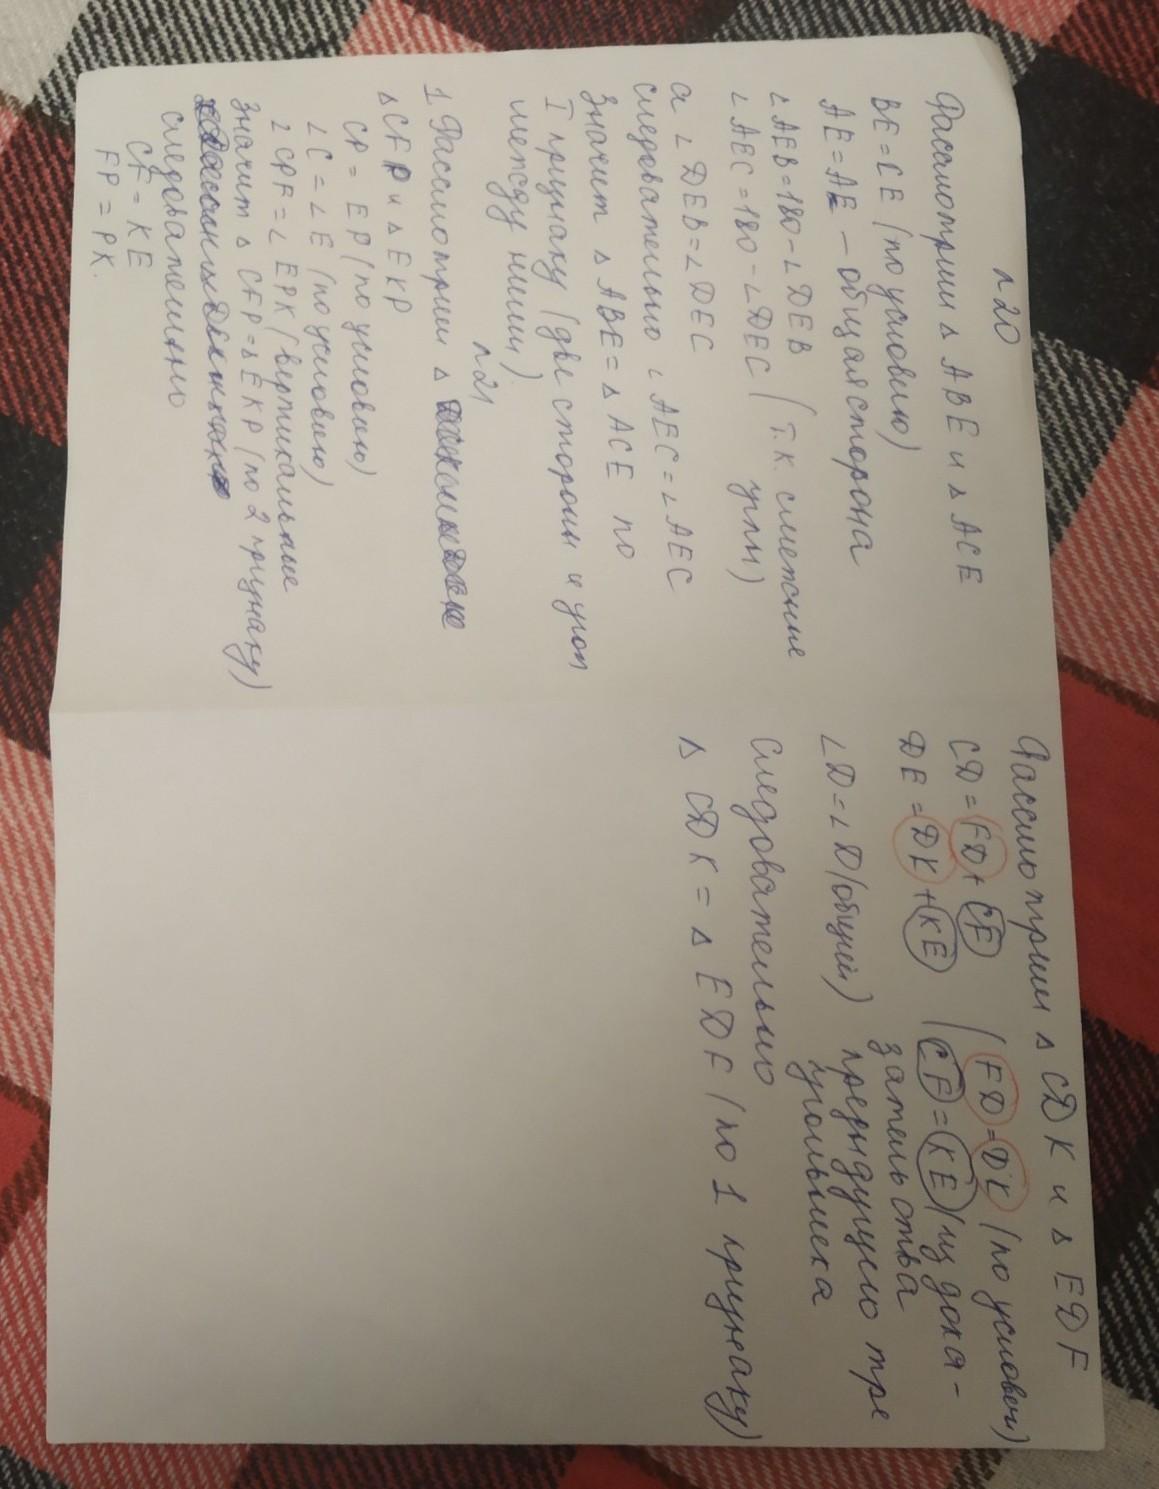 n 20
Рассмотрим △ ABE и △ ACE
BE = CE (по условию)
AE = AE – общая сторона
∠ AEB = 180 - ∠ DEB
∠ AEC = 180 - ∠ DEC (т.к. смежные углы)
а ∠ DEB = ∠ DEC
следовательно ∠ AEC = ∠ AEC
Значит △ ABE = △ ACE по
I признаку (две стороны и угол
между ними)
n 21
1. Рассмотрим △
△ CFP и △ EKP
CP = EP (по условию)
∠C = ∠E (по условию)
∠ CPF = ∠ EPK (вертикальные
Значит △ CFP = △ EKP (по 2 признаку)
следовательно
CF = KE
FP = PK.
Рассмотрим △ CDK и △ EDF
CD = FD + CF (FD = DK (по условеи)
DE = DK + KE (CF = KE (из дока-
зательства
∠D = ∠D (общий) предыдущего тре
угольника
Следовательно
△ CDK = △ EDF (по 1 признаку)